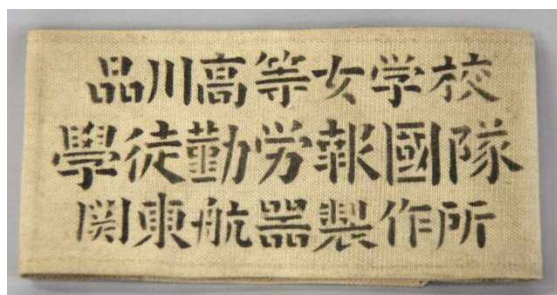 品川高等女学校
學徒勤労報國隊
関東航器製作所